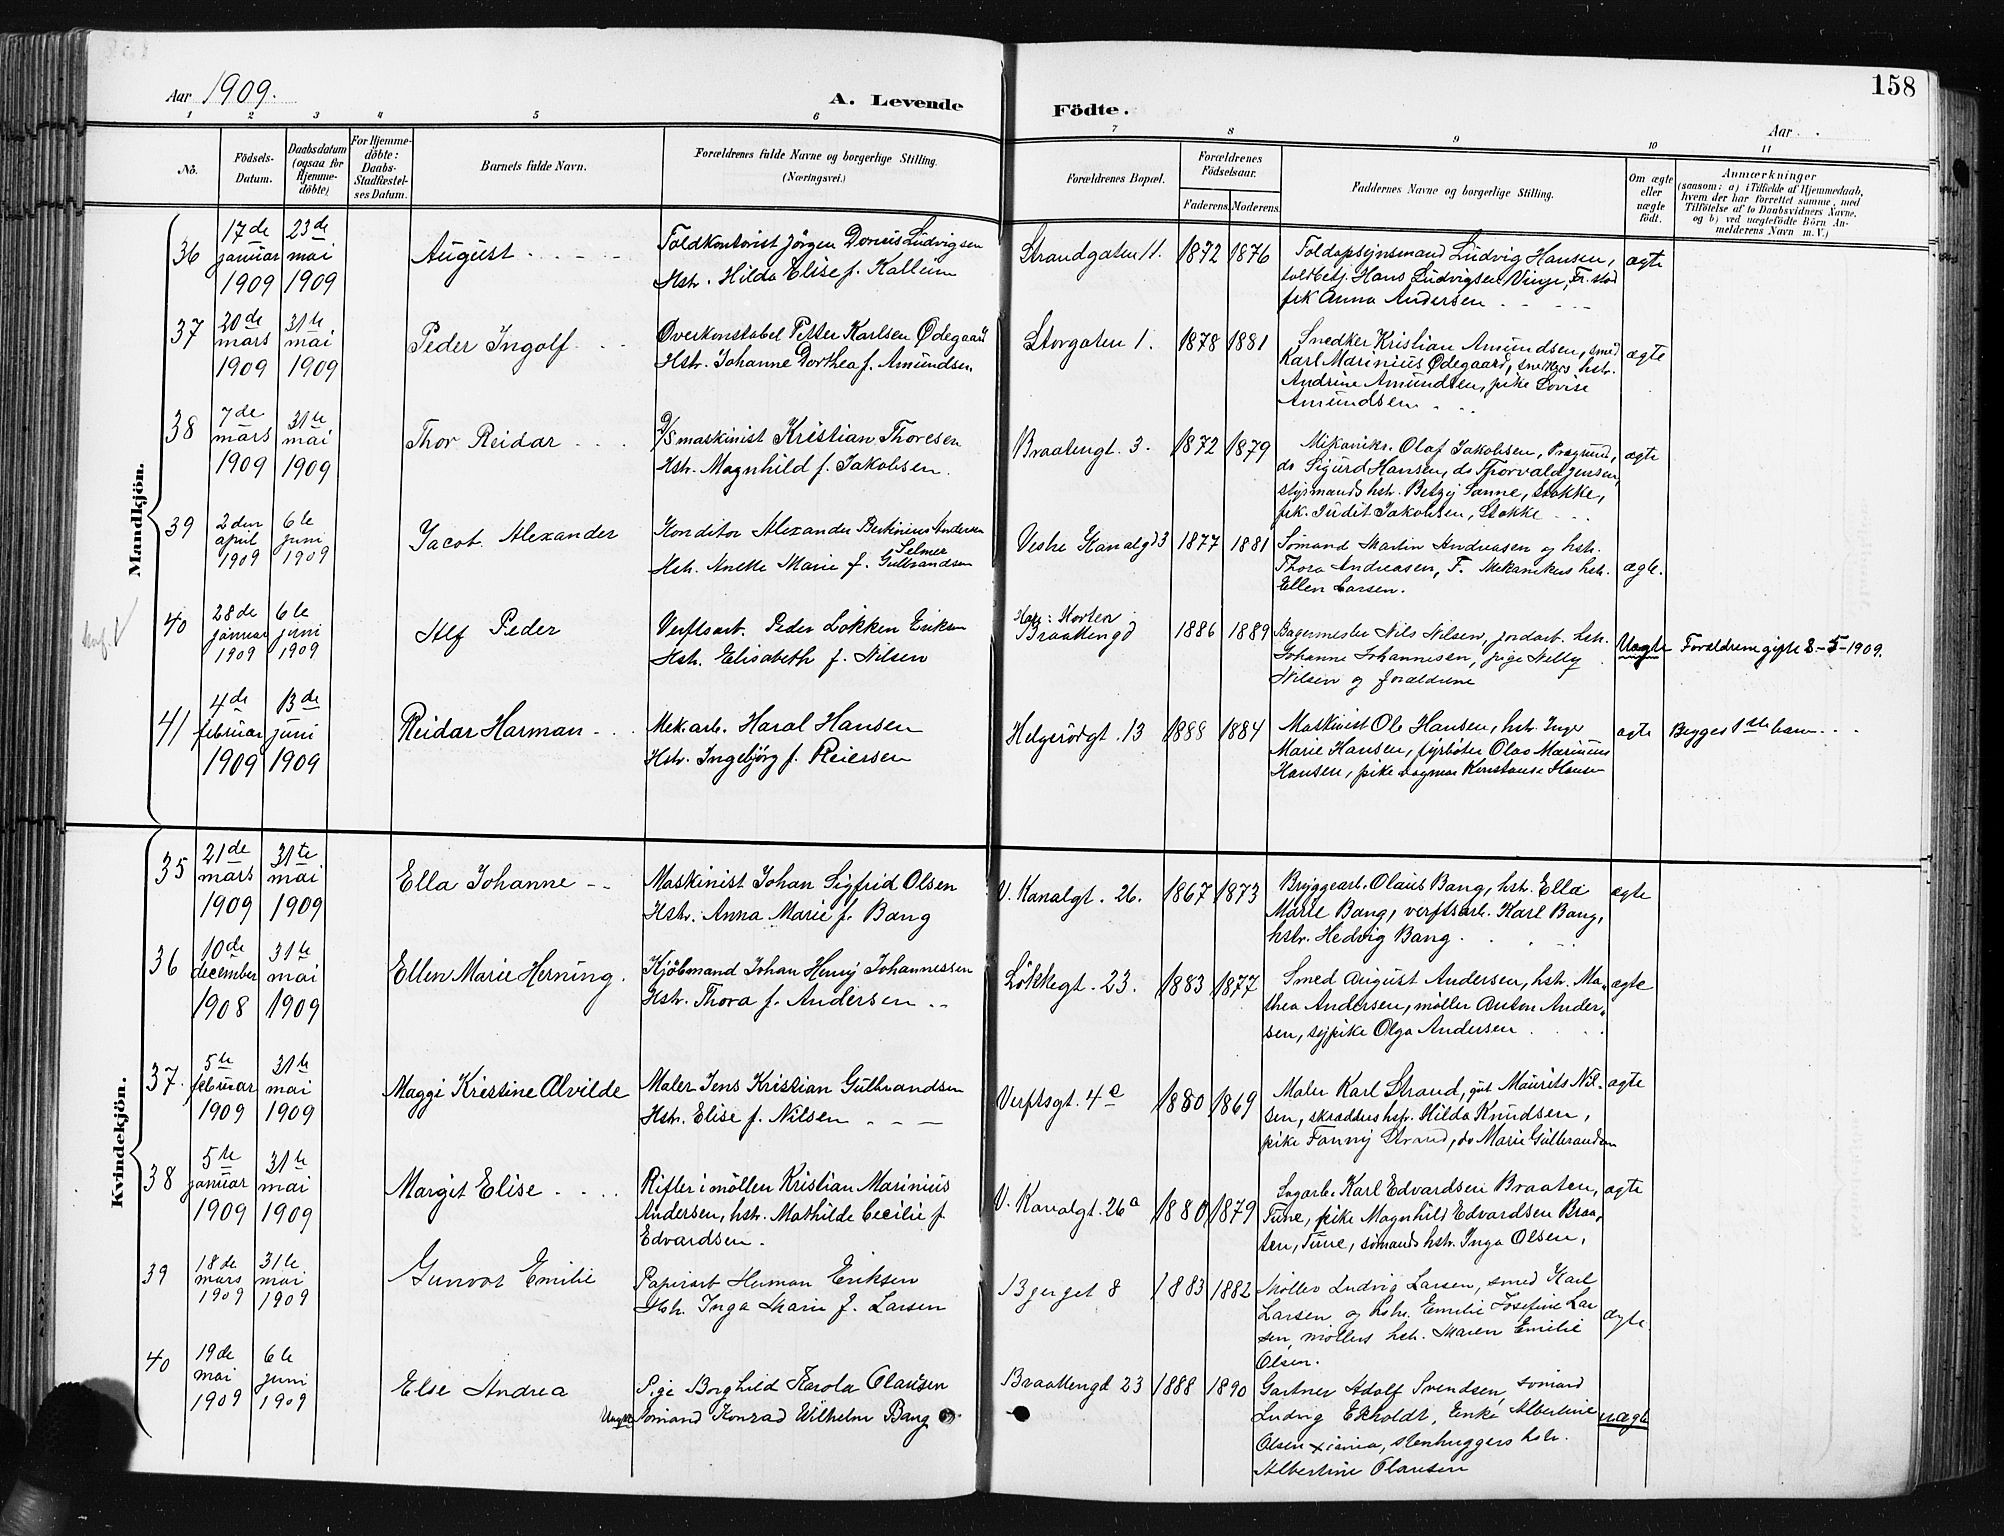 Aar 1909.
A. Levende Födte.
158
Aar
1 2 3 4 5 6 7 8 9 10 11
No.
Födsels-Datum.
Daabsdatum (ogsaa for Hjemme-döbte)
For Hjemme-döbte: Daabs-Stadfæstel-ses Datum.
Barnets fulde Navn.
Forældrenes fulde Navne og borgerlige Stilling.
(Næringsvei.)
Forældrenes Bopæl.
Forældrenes Födselsaar.
Faderens. Moderens.
Faddernes Navne og borgerlige Stilling.
Om ægte eller uægte födt.
Anmærkninger
(saasom: a) i Tilfælde af Hjemmedaab,
hvem der har forrettet samme, med
Tilföielse af to Daabsvidners Navne.
og b) ved uægtefödte Börn An-
melderens Navn m. V.)
Mandkjön.
36 17de januar 1909 23de mai 1909 August
Toldkontorist Jörgen Donis Ludvigsen
Hstr. Hilda Elise f. Kallum
Strandgaten 11. 1872 1876
Toldopsynsmand Ludvig Hansen,
toldbetj. Hans Ludvigsen Vinje, Fr.stad
frk Anna Andersen
ægte
37 20de mars 1909 31te mai 1909 Peder Ingolf
Overkonstabel Petter Karlsen Ødegaard
Hstr. Johanne Dorthea f. Amundsen.
Storgaten 1. 1878 1881
Snedker Kristian Amundsen, smed
Karl Marinius Ødegaard, snedkers hstr.
Andrine Amundsen, pike Lovise
Amundsen
ægte
38 7de mars 1909 31te mai 1909 Thor Reidar
D/S maskinist Kristian Thoresen
Hstr. Magnhild f. Jakobsen.
Braatengt. 3. 1872 1879
Mekanikr. Olaf Jakobsen, Prægrund,
do Sigurd Hansen, do Thorvald Jensen,
styrmands hstr. Betzy Sanne, Stokke,
frk. Judit Jakobsen, Stokke
ægte
39 2den april 1909 6te juni 1909 Jacob Alexander
Konditor Alexander Berthinius Andersen
Hstr. Anette Marie f. Selmer Gulbrandsen
Vestre Kanalgd 3 1877 1881
Sømand Martin Andreasen og hstr.
Thora Andreasen, F. Mekanikers hstr.
Ellen Larsen.
ægte.
40 28de januar 1909 6te juni 1909 Alf Peder
Verftsarb. Peder Løkken Eriksen
Hstr. Elisabeth f. Nilsen
Braattengd 1886 1889
Bagermester Nils Nilsen, jordarb. hstr.
Johanne Johannesen, pige Nelly
Nilsen og forældrene
Uægte Forældrene gifte 2-5-1909.
41 4de februar 1909 13de juni 1909 Reidar Harman
Mek.arb. Haral Hansen
Hstr. Ingebjörg f. Reiersen
Helgerödgt. 13 1888 1884
Maskinist Ole Hansen, hstr. Inger
Marie Hansen, fyrböter Olav Marinius
Hansen, pike Dagmar Konstanse Hansen
ægte Begges 1ste barn
Kvindekjön.
35 21de mars 1909 31te mai 1909 Ella Johanne
Maskinist Johan Sigfrid Olsen
Hstr. Anna Marie f. Bang
V. Kanalgt. 26. 1867 1873
Bryggearb. Olaus Bang, hstr. Ella
Marie Bang, verftsarb. Karl Bang,
hstr. Hedvig Bang.
ægte
36 10de december 1908 31te mai 1909 Ellen Marie Herning.
Kjöbmand Johan Henry Johannessen
Hstr. Thora f. Andersen
Lökkegt. 23. 1883 1877
Smed August Andersen, hstr. Ma-
thea Andersen, møller Anton Ander-
sen, sypike Olga Andersen.
ægte
37. 5te februar 1909 31te mai 1909 Maggi Kristine Alvilde
Maler Jens Kristian Gulbrandsen
Hstr. Elise f. Nilsen
Verftsgt. 4c 1880 1869
Maler Karl Strand, gut Maurits Nil-
sen, skrædders hstr. Hilda Knudsen,
pike Fanny Strand, do Marie Gulbrandsen
ægte
38 5te januar 1909 31te mai 1909 Margit Elise
Rifler i möllen Kristian Marinius
Andersen, hstr. Mathilde Cecilie f.
Edvardsen.
V. Kanalgt. 26a 1880 1879
Sagarb. Karl Edvardsen Braaten,
Tune, pike Magnhild Edvardsen Braa-
ten, Tune, sømands hstr. Inga Olsen,
ægte
39 18de mars 1909 31te mai 1909 Gunvor Emilie
Papirarb Herman Eriksen
Hstr. Inga Marie f. Larsen
Bjerget 8 1883 1882
Møller Ludvig Larsen, smed Karl
Larsen og hstr. Emilie Josefine Lar
sen, møllers hstr. Maren Emilie
Olsen.
ægte.
40 19de mai 1909 6te juni 1909 Else Andrea
Pige Borghild Karola Olausen
Ungk. sømand Konrad Wilhelm Bang
Braattengd 23 1888 1890
Gartner Adolf Svendsen, sømand
Ludvig Ekholdt, Enke Albertine
Olsen xiania, stenhuggers hstr.
Albertine Olausen
uægte